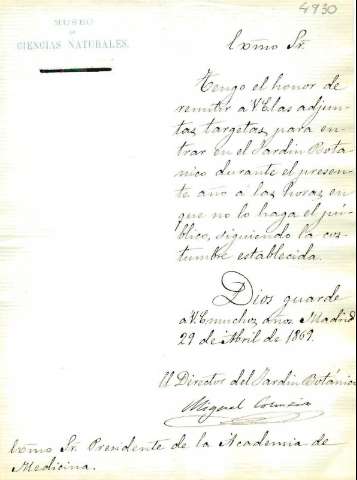 4930
MUSEO
DE
CIENCIAS NATURALES.
Exmo Sr.
Tengo el honor de
remitir a V.E. las adjun-
tas targetas, para en-
trar en el Jardin Bota-
nico durante el presen-
te año á las horas en
que no lo haga el pú-
blico, siguiendo la cos-
tumbre establecida.
Dios guarde
a V.E. muchos años. Madrid
29 de Abril de 1869.
El Director del Jardin Botánico
Miguel Colmeiro
Exmo Sr. Presidente de la Academia de
Medicina.